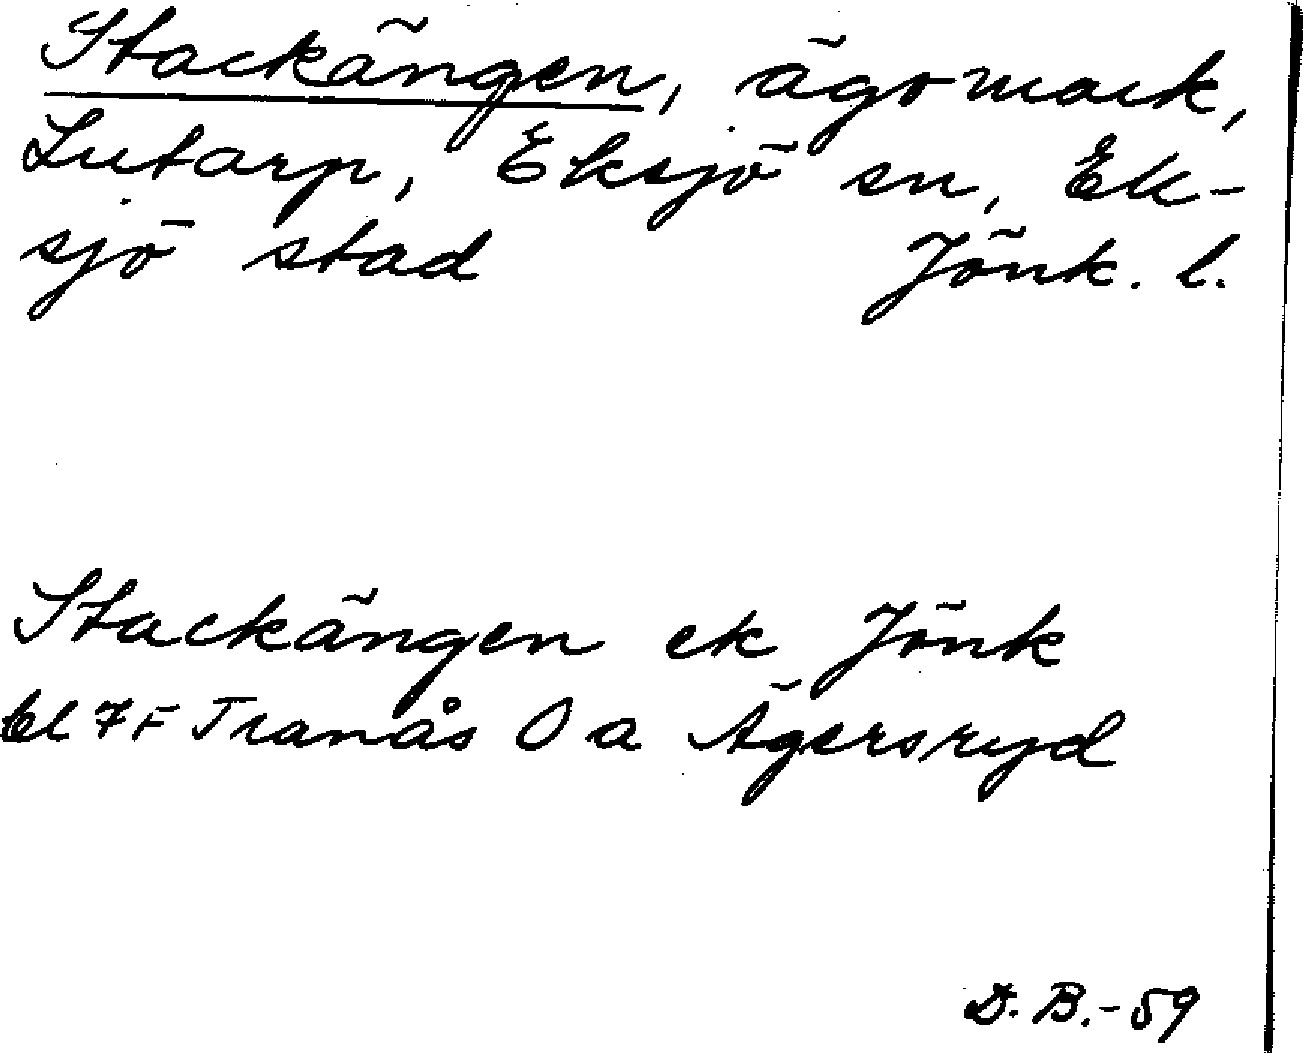 Stackängen, ägomark,
Lutarp, Eksjö sn, Ek-
sjö stad Jönk. l.
Stackängen ek Jönk
bl 7F Tranås O a Ägersryd
D. B. - 59